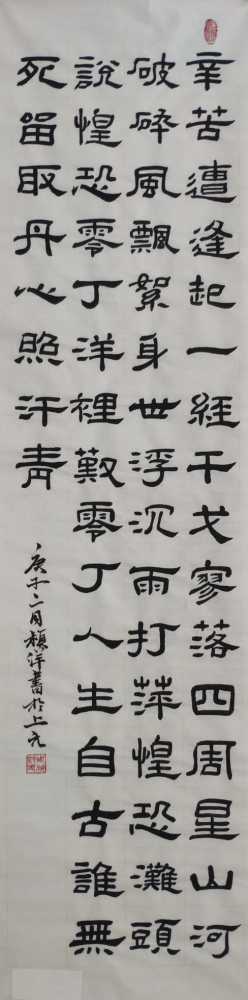 辛苦遭逢起一经干戈寥落四周星山河
破碎風飄絮身世浮沉雨打萍惶恐灘頭
說惶恐零丁洋裡歎零丁人生自古誰無
死留取丹心照汗青
庚子二月 書於上元